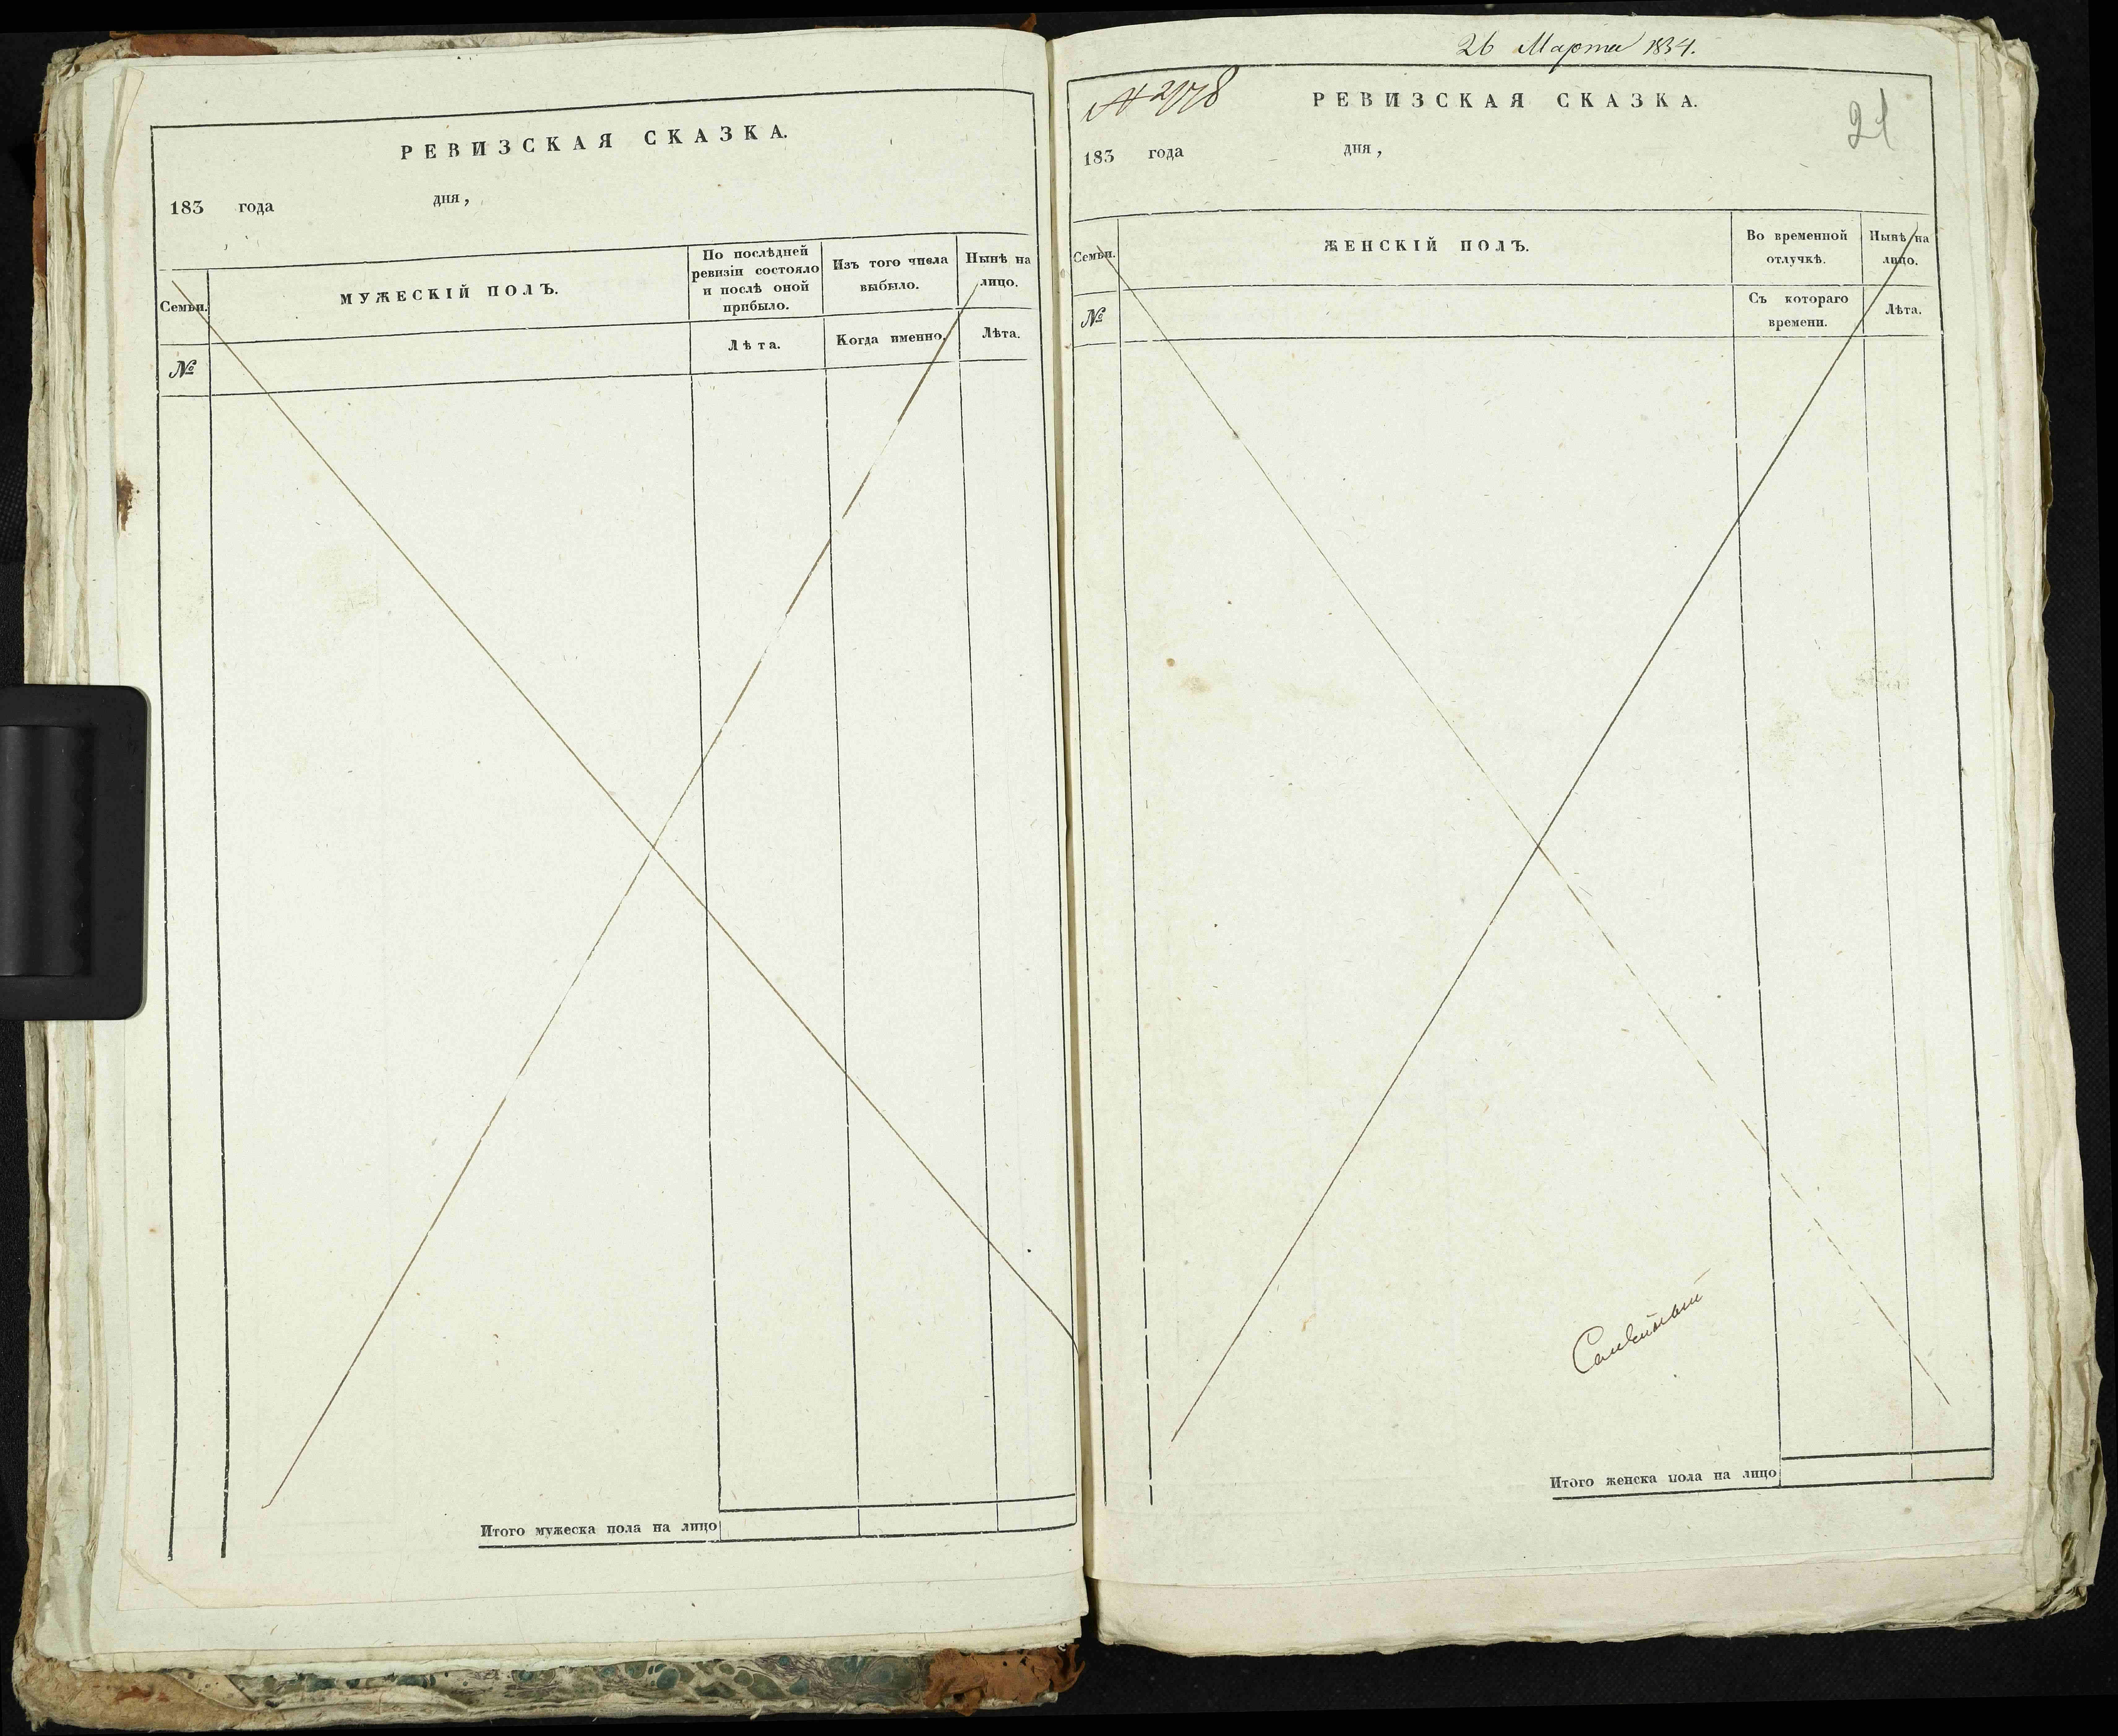 РЕВИЗСКАЯ СКАЗКА.
183 года дня,
Семьи.
МУЖЕСКІЙ ПОЛЪ.
По послѣдней
ревизіи состояло
и послѣ оной
прибыло.
Изъ того числа
выбыло.
Нынѣ на
лицо.
№
Лѣта.
Когда именно.
Лѣта.
Итого мужеска пола на лицо
26 Марта 1834.
РЕВИЗСКАЯ СКАЗКА.
21
183 года дня,
Семьи.
ЖЕНСКІЙ ПОЛЪ.
Во временной
отлучкѣ.
Нынѣ на
лицо.
№
Съ котораго
времени.
Лѣта.
Итого женска пола на лицо